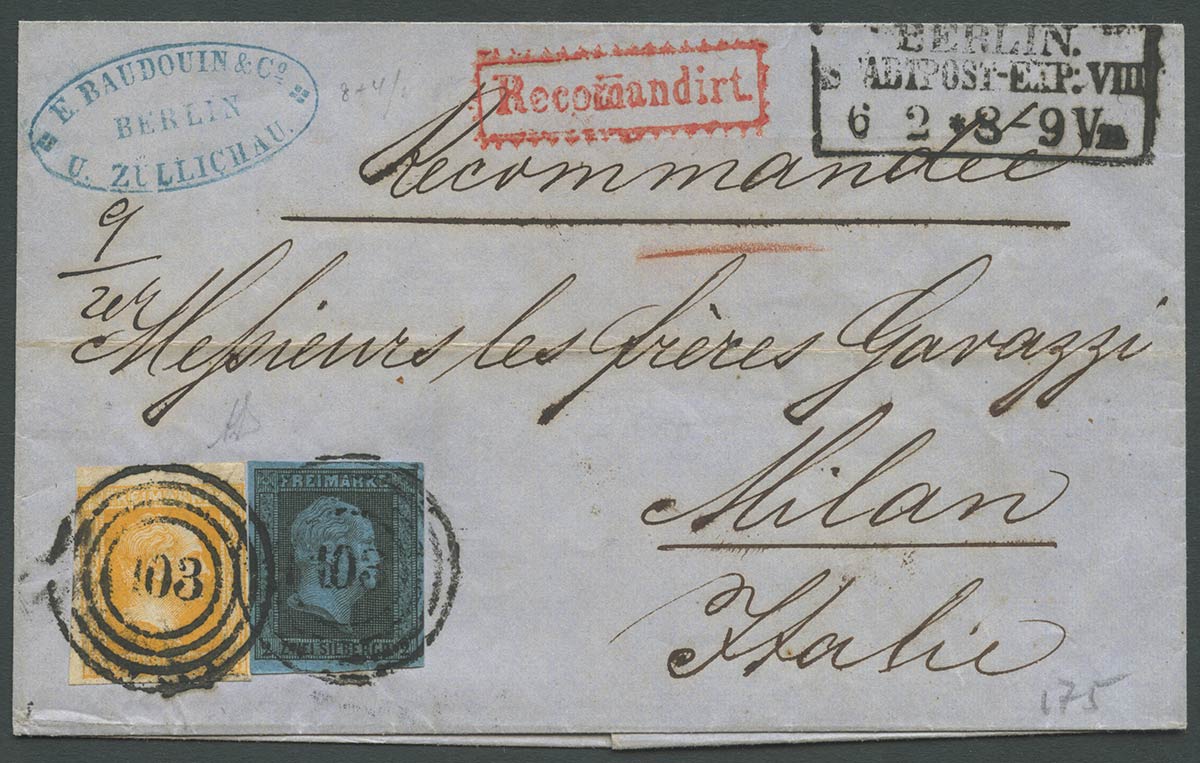 E. BAUDOUIN & Co.
BERLIN
U. ZÜLLICHAU.
Recomandirt.
BERLIN.
STADTPOST-EXP: VIII
6 2 * 8-9 Vm
Recommandée
9
Meßieurs les frères Gavazzi
Milan
Italie
103
FREIMARKE
103
2 ZWEI SILBERGR. 2
175